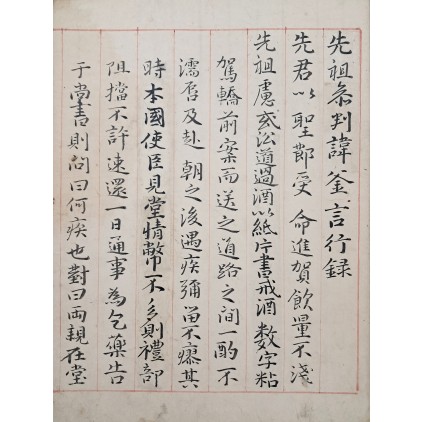 先祖參判諱釜言行録
先君以聖節受 命進賀飲量不淺
先祖慮或沿道過酒以紙片書戒酒數字粘
駕轎前案而送之道路之間一酌不
濡唇及赴 朝之後遇疾彌留不瘳其
時本國使臣見堂情幣不多則禮部
阻擋不許速還一日通事為乞藥告
于尚書則問曰何疾也對曰両親在堂